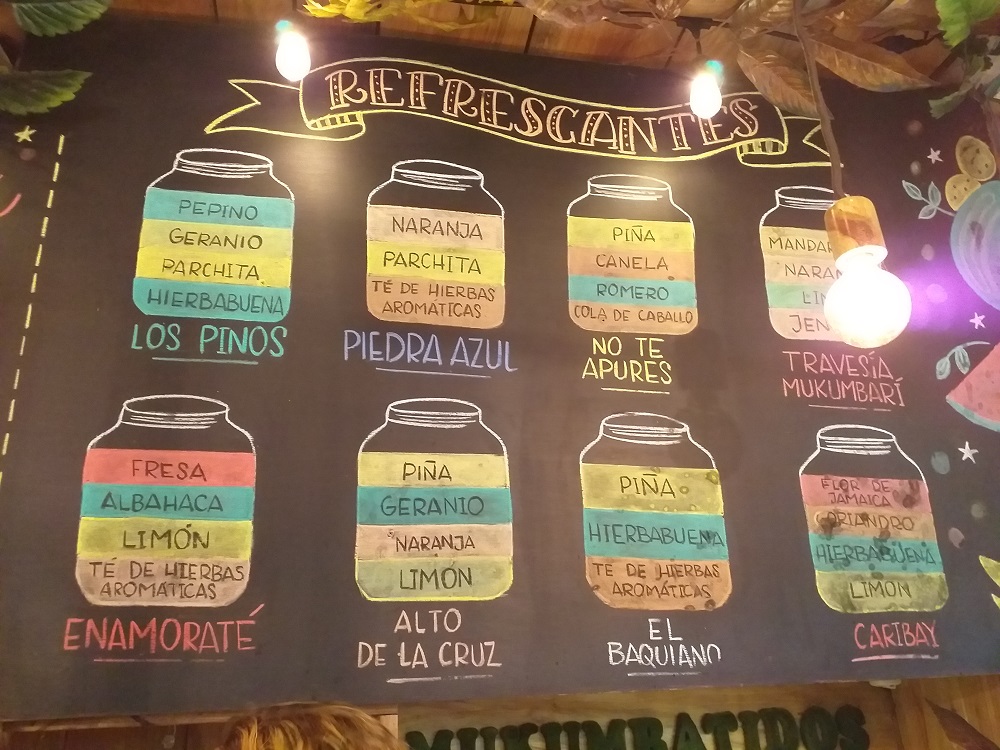 REFRESCANTES
PEPINO
GERANIO
PARCHITA
HIERBABUENA
LOS PINOS
NARANJA
PARCHITA
TÉ DE HIERBAS
AROMÁTICAS
PIEDRA AZUL
PIÑA
CANELA
ROMERO
COLA DE CABALLO
NO TE
APURES
TRAVESÍA
MUKUMBARÍ
FRESA
ALBAHACA
LIMÓN
TÉ DE HIERBAS
AROMÁTICAS
ENAMORATÉ
PIÑA
GERANIO
NARANJA
LIMÓN
ALTO
DE LA CRUZ
PIÑA
HIERBABUENA
TÉ DE HIERBAS
AROMÁTICAS
EL
BAQUIANO
FLOR DE
JAMAICA
CORIANDRO
HIERBABUENA
LIMON
CARIBAY
MUKUMBATIDOS